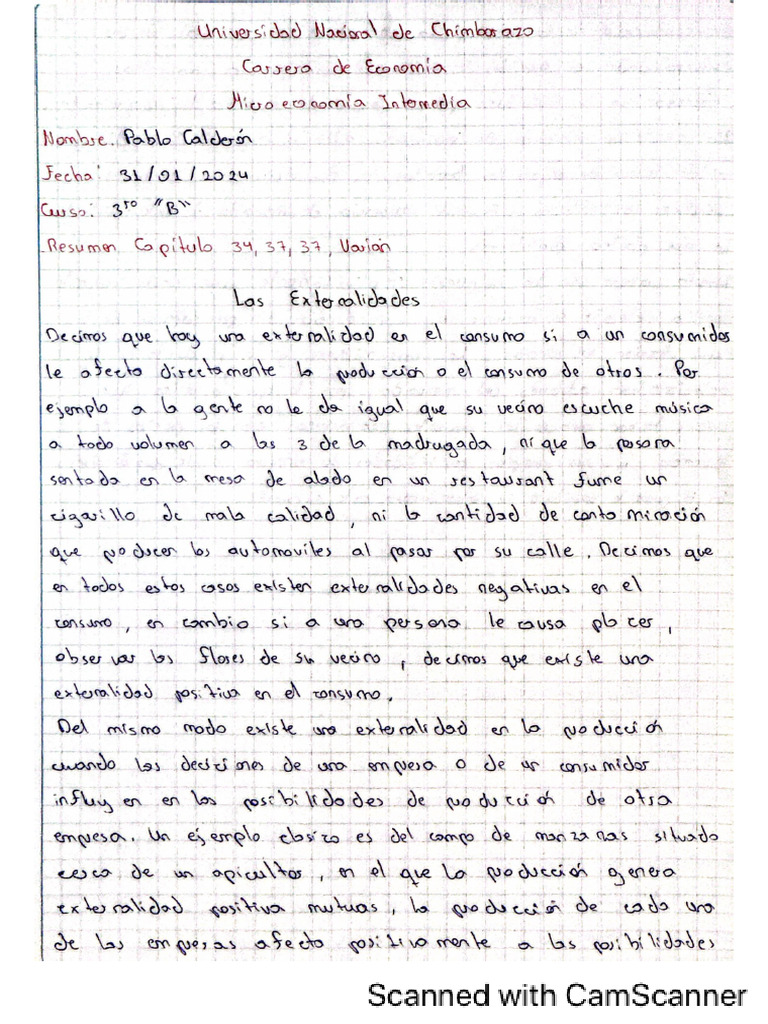 Universidad Nacional de Chimborazo
Carrera de Economía
Microeconomía Intermedia
Nombre. Pablo Calderón
Fecha: 31/01/2024
Curso: 3ro "B"
Resumen Capítulo 34, 37, 37, Varian
Las Externalidades
Decimos que hay una externalidad en el consumo si a un consumidor
le afecta directamente la producción o el consumo de otros. Por
ejemplo a la gente no le da igual que su vecino escuche música
a todo volumen a las 3 de la madrugada, ni que la persona
sentada en la mesa de alado en un restaurant fume un
cigarillo de mala calidad, ni la cantidad de contaminación
que producen los automoviles al pasar por su calle. Decimos que
en todos estos casos existen externalidades negativas en el
consumo, en cambio si a una persona le causa placer,
observar las flores de su vecino, decimos que existe una
externalidad positiva en el consumo.
Del mismo modo existe una externalidad en la producción
cuando las deciciones de una empresa o de un consumidor
influyen en las posibilidades de producción de otra
empresa. Un ejemplo clasico es del campo de manzanas situado
cerca de un apicultor, en el que la producción genera
externalidad positiva mutuas, la producción de cada una
de las empresas afecta positivamente a las posibilidades
Scanned with CamScanner